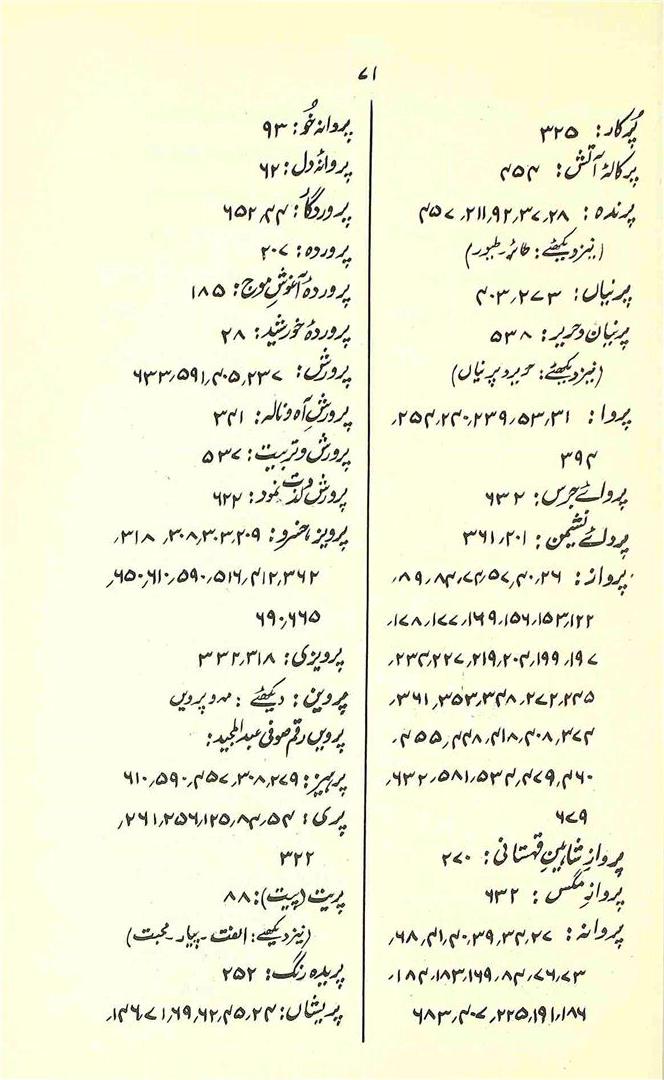 ۷۱
پُرکار: ۳۲۵
پرکالۂ آتش: ۴۵۴
پرندہ: ۲۸، ۳۷، ۹۲، ۲۱۱، ۴۵۷
(نیز دیکھئے: طائر۔ طیور)
پرنیاں: ۲۷۳، ۴۰۳
پرنیان و حریر: ۵۳۸
(نیز دیکھئے: حریر و پرنیاں)
پروا: ۳۱، ۵۳، ۲۳۹، ۲۴۰، ۲۵۴،
۳۹۴
پروائے جرس: ۶۳۲
پروائے نشیمن: ۲۰۱، ۳۶۱
پرواز: ۲۶، ۴۰، ۵۷، ۷۴، ۸۴، ۸۹،
۱۲۲، ۱۵۳، ۱۵۶، ۱۶۹، ۱۷۷، ۱۷۸،
۱۹۷، ۱۹۹، ۲۰۴، ۲۱۹، ۲۲۷، ۲۳۴،
۲۴۵، ۲۷۲، ۳۴۸، ۳۵۳، ۳۶۱،
۳۷۴، ۴۰۸، ۴۱۸، ۴۴۸، ۴۵۵،
۴۶۰، ۴۷۹، ۵۳۴، ۵۸۱، ۶۳۲،
۶۷۹
پروازِ شاہینِ قہستانی: ۲۷۰
پروازِ مگس: ۶۳۲
پروانہ: ۲۷، ۳۴، ۳۹، ۴۰، ۴۱، ۶۸،
۷۳، ۷۶، ۸۴، ۱۶۹، ۱۸۳، ۱۸۴،
۱۸۶، ۱۹۱، ۲۲۵، ۴۰۷، ۶۸۳
پروانہ خُو: ۹۳
پروانۂ دل: ۶۲
پروردگار: ۴۴، ۶۵۲
پروردہ: ۲۰۷
پروردۂ آغوشِ موج: ۱۸۵
پروردۂ خورشید: ۲۸
پرورش: ۲۳۷، ۴۰۵، ۵۹۱، ۶۳۳
پرورشِ آہ و نالہ: ۳۴۱
پرورش و تربیت: ۵۳۷
پرورش لذت نمود: ۶۲۲
پرویز، خسرو: ۲۰۹، ۳۰۳، ۳۰۸، ۳۱۸،
۳۶۲، ۴۱۲، ۵۱۶، ۵۹۰، ۶۱۰، ۶۵۰،
۶۶۵، ۶۹۰
پرویزی: ۳۱۸، ۳۳۲
پروین: دیکھئے: مہ و پرویں
پرویں رقم صوفی عبدالمجید:
پرہیز: ۲۷۹، ۳۰۸، ۴۵۷، ۵۹۰، ۶۱۰
پری: ۵۴، ۸۴، ۱۲۵، ۲۵۶، ۲۶۱،
۳۲۲
پریت (پیت): ۸۸
(نیز دیکھئے: الفت۔ پیار۔ محبت)
پریدہ رنگ: ۲۵۲
پریشاں: ۲۴، ۴۵، ۶۲، ۶۹، ۷۱، ۱۴۶،